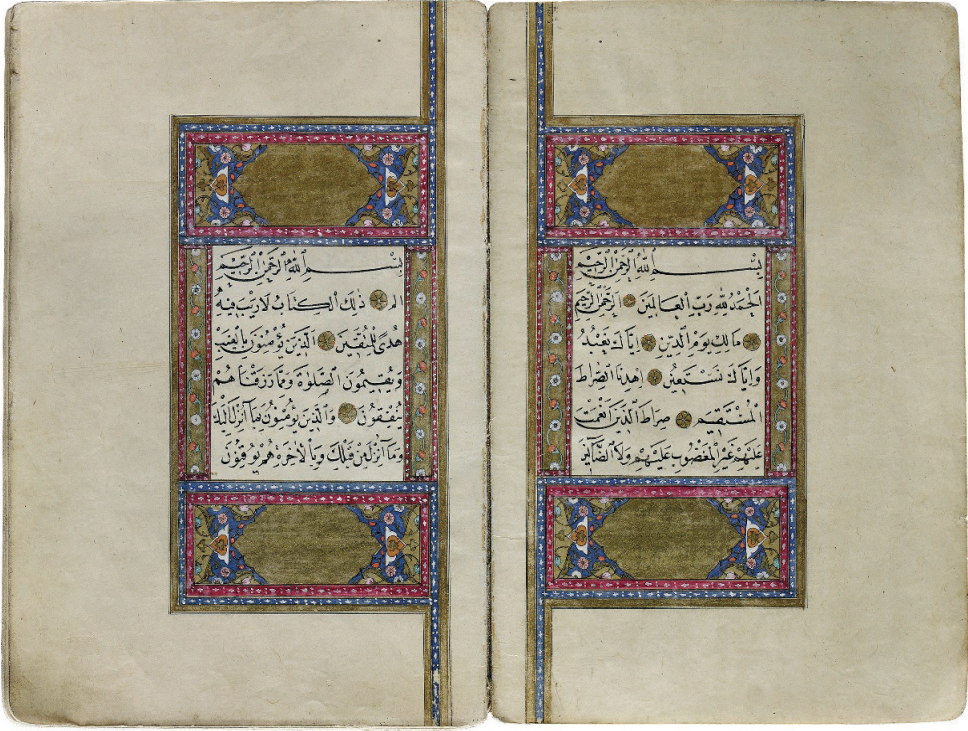 بِسْمِ اللّٰهِ الرَّحْمٰنِ الرَّحِيمِ
اَلْحَمْدُ لِلّٰهِ رَبِّ الْعَالَمِينَ ۝ اَلرَّحْمٰنِ الرَّحِيمِ
۝ مَالِكِ يَوْمِ الدِّينِ ۝ اِيَّاكَ نَعْبُدُ
وَاِيَّاكَ نَسْتَعِينُ ۝ اِهْدِنَا الصِّرَاطَ
الْمُسْتَقِيمَ ۝ صِرَاطَ الَّذِينَ اَنْعَمْتَ
عَلَيْهِمْ غَيْرِ الْمَغْضُوبِ عَلَيْهِمْ وَلَا الضَّٓالِّينَ
بِسْمِ اللّٰهِ الرَّحْمٰنِ الرَّحِيمِ
الم ۝ ذٰلِكَ الْكِتَابُ لَا رَيْبَ فِيهِ
هُدًى لِلْمُتَّقِينَ ۝ اَلَّذِينَ يُؤْمِنُونَ بِالْغَيْبِ
وَيُقِيمُونَ الصَّلٰوةَ وَمِمَّا رَزَقْنَاهُمْ
يُنْفِقُونَ ۝ وَالَّذِينَ يُؤْمِنُونَ بِمَا اُنْزِلَ اِلَيْكَ
وَمَا اُنْزِلَ مِنْ قَبْلِكَ وَبِالْاٰخِرَةِ هُمْ يُوقِنُونَ